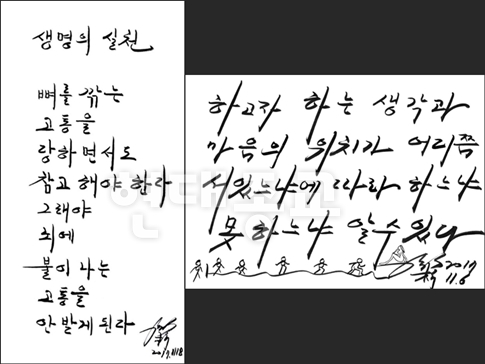 생명의 실천
뼈를 깎는
고통을
랑하면서도
참고 해야 한다
그래야
최에
불이 나는
고통을
안 받게 된다
하고자 하는 생각과
마음의 위치가 어디쯤
서있느냐에 따라 하느냐
못 하느냐 알수 있다
2017
11.6
현대종교